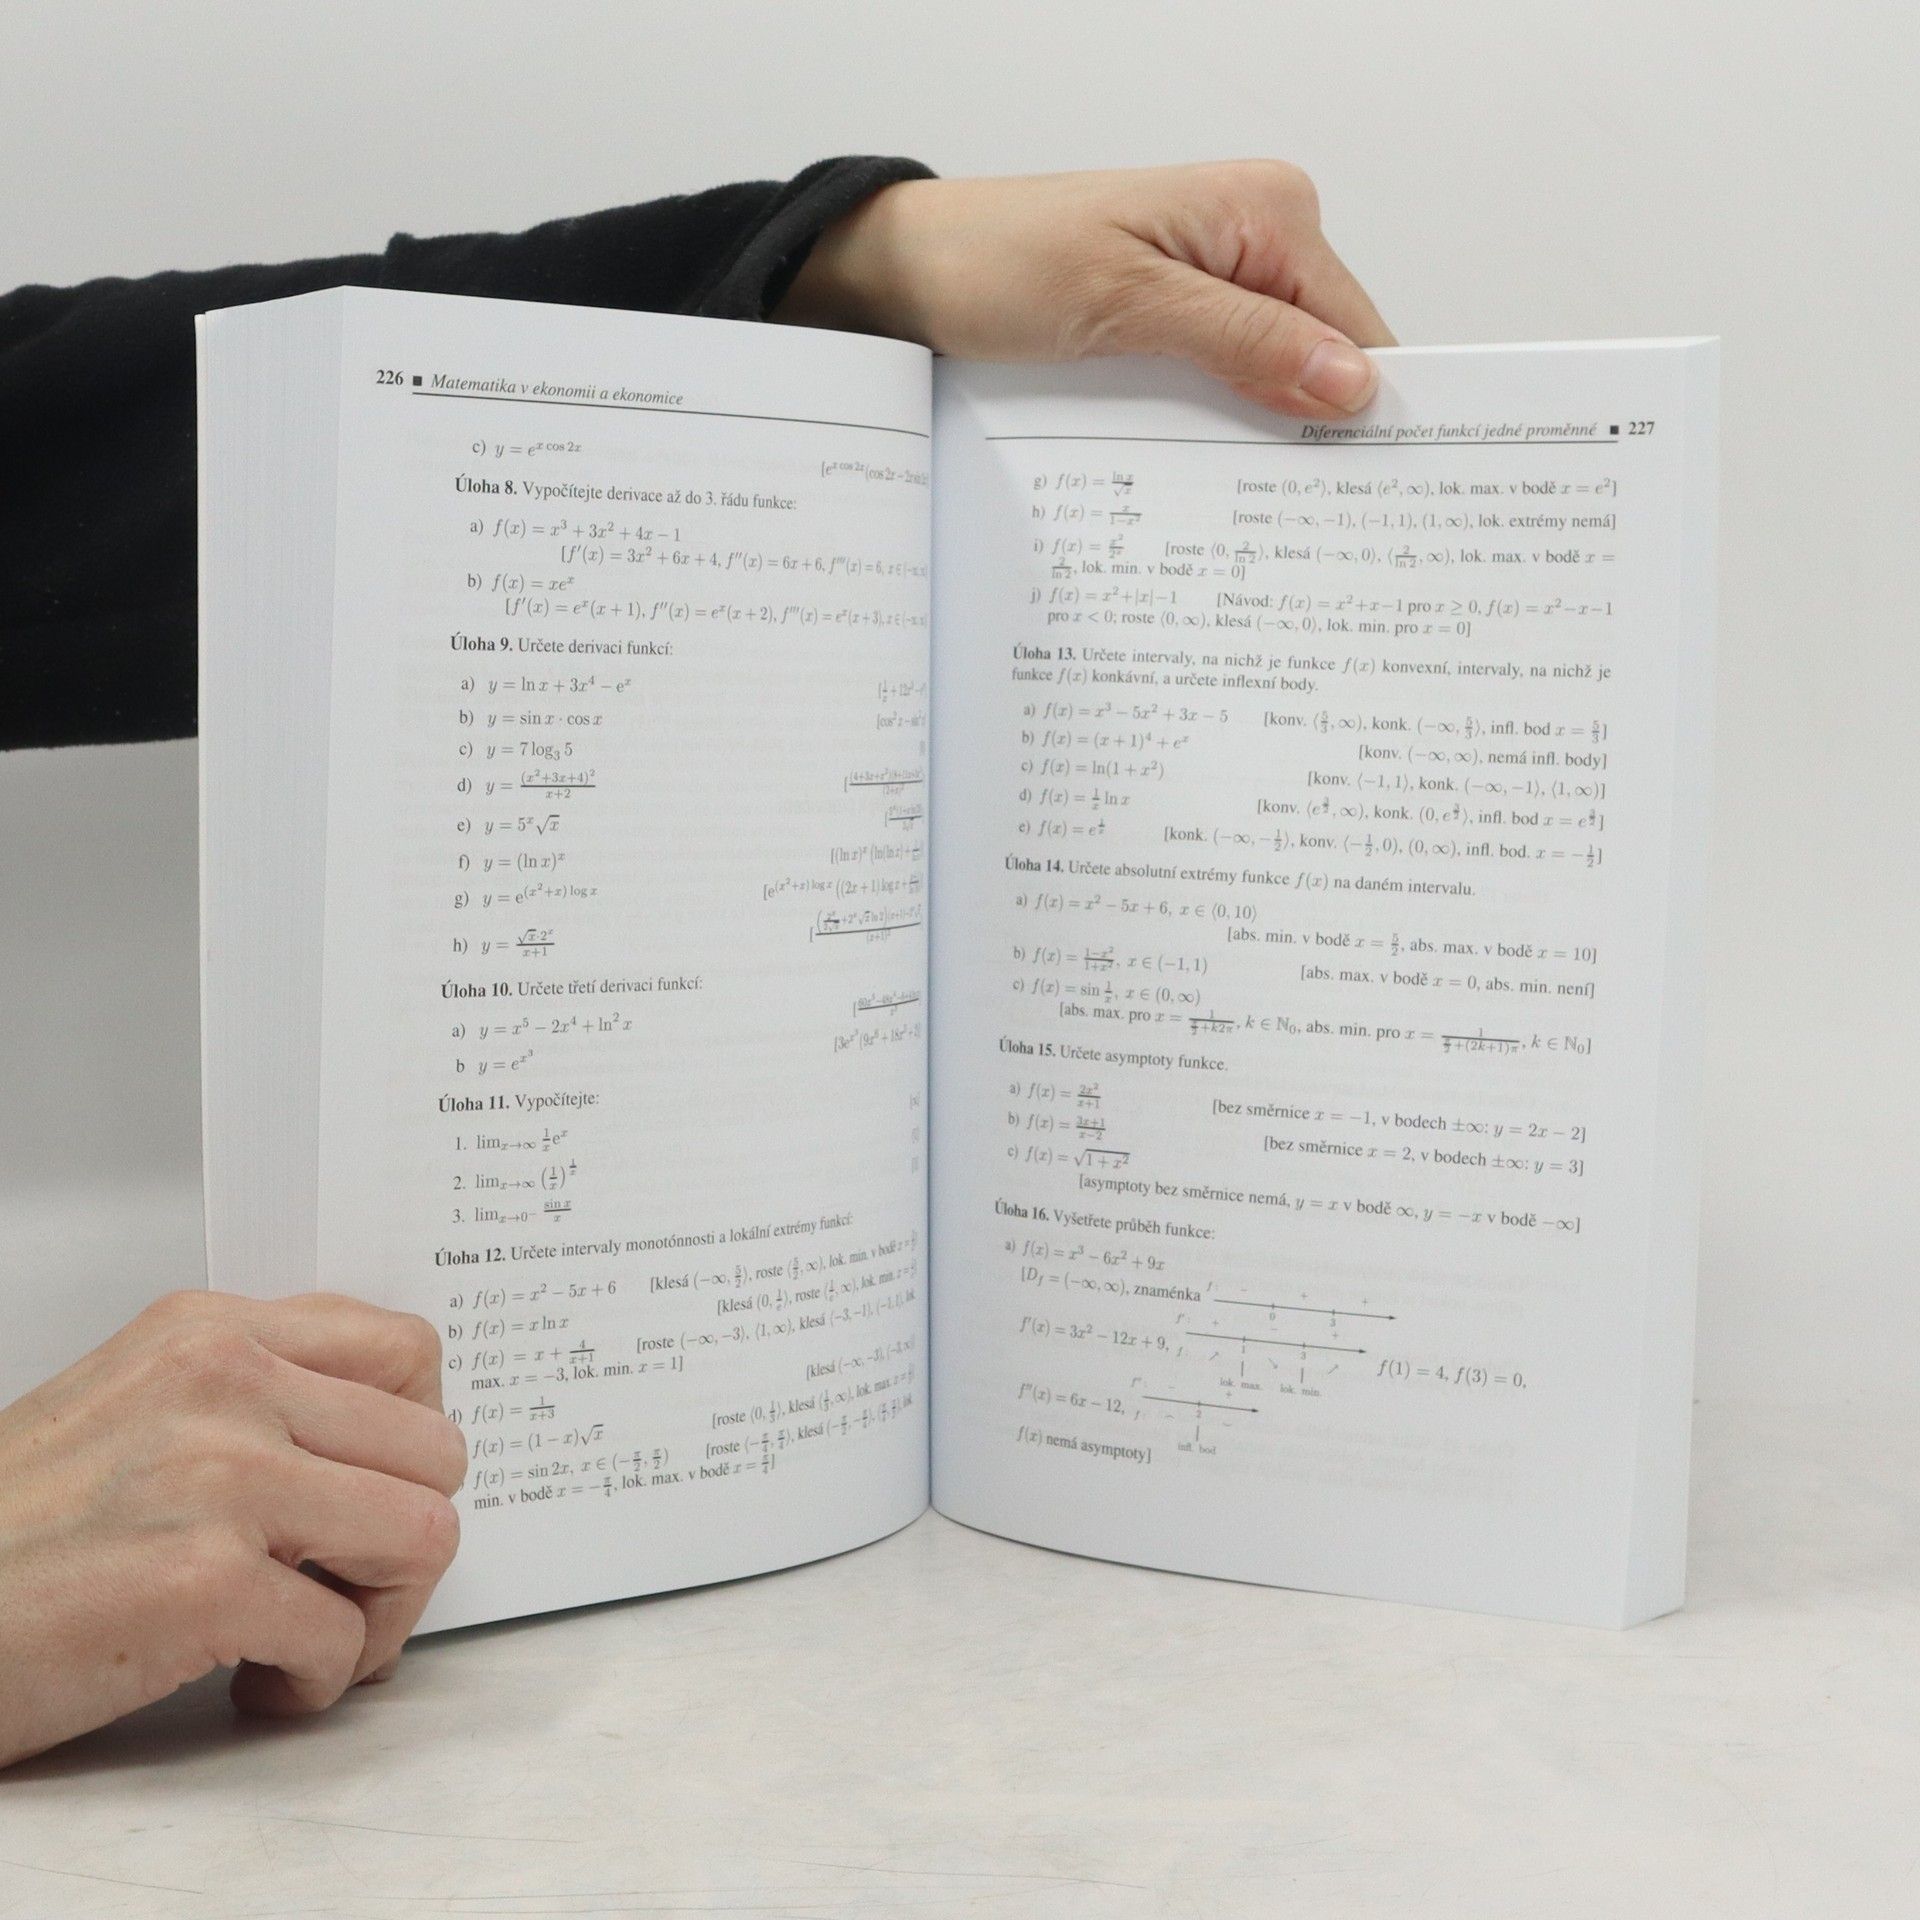 226 ■ Matematika v ekonomii a ekonomice
c) y = e^{x cos 2x}
[e^{x cos 2x}(cos 2x − 2x sin 2x)
Úloha 8. Vypočítejte derivace až do 3. řádu funkce:
a) f(x) = x³ + 3x² + 4x − 1
[f′(x) = 3x² + 6x + 4, f″(x) = 6x + 6, f‴(x) = 6, x ∈
b) f(x) = xe^x
[f′(x) = e^x(x + 1), f″(x) = e^x(x + 2), f‴(x) = e^x(x + 3), x ∈
Úloha 9. Určete derivaci funkcí:
a) y = ln x + 3x⁴ − e^x
b) y = sin x · cos x [cos² x − sin² x]
c) y = 7 log₃ 5
d) y = (x²+3x+4)²/(x+2)
e) y = 5^x √x
f) y = (ln x)^x
g) y = e^{(x²+x) log x}
h) y = (√x·2^x)/(x+1)
Úloha 10. Určete třetí derivaci funkcí:
a) y = x⁵ − 2x⁴ + ln² x
b y = e^{x³}
Úloha 11. Vypočítejte:
1. lim_{x→∞} 1/x e^x
2. lim_{x→∞} (1/x)^{1/x}
3. lim_{x→0⁻} sin x/x
Úloha 12. Určete intervaly monotónnosti a lokální extrémy funkcí:
a) f(x) = x² − 5x + 6 [klesá (−∞, 5/2⟩, roste ⟨5/2, ∞), lok. min. v bodě x = 5/2]
b) f(x) = x ln x [klesá (0, 1/e⟩, roste ⟨1/e, ∞), lok. min. x = 1/e]
c) f(x) = x + 4/(x+1) [roste (−∞, −3⟩, ⟨1, ∞), klesá ⟨−3, −1), (−1, 1⟩, lok.
max. x = −3, lok. min. x = 1]
d) f(x) = 1/(x+3) [klesá (−∞, −3), (−3, ∞)]
f(x) = (1 − x)√x [roste ⟨0, 1/3⟩, klesá ⟨1/3, ∞), lok. max. x = 1/3]
f(x) = sin 2x, x ∈ (−π/2, π/2) [roste ⟨−π/4, π/4⟩, klesá (−π/2, −π/4⟩, ⟨π/4, π/2), lok.
min. v bodě x = −π/4, lok. max. v bodě x = π/4]
Diferenciální počet funkcí jedné proměnné ■ 227
g) f(x) = ln x/√x [roste (0, e²⟩, klesá ⟨e², ∞), lok. max. v bodě x = e²]
h) f(x) = x/(1−x²) [roste (−∞, −1), (−1, 1), (1, ∞), lok. extrémy nemá]
i) f(x) = x²/2^x [roste ⟨0, 2/ln 2⟩, klesá (−∞, 0⟩, ⟨2/ln 2, ∞), lok. max. v bodě x =
2/ln 2, lok. min. v bodě x = 0]
j) f(x) = x²+|x|−1 [Návod: f(x) = x²+x−1 pro x ≥ 0, f(x) = x²−x−1
pro x < 0; roste ⟨0, ∞), klesá (−∞, 0⟩, lok. min. pro x = 0]
Úloha 13. Určete intervaly, na nichž je funkce f(x) konvexní, intervaly, na nichž je
funkce f(x) konkávní, a určete inflexní body.
a) f(x) = x³ − 5x² + 3x − 5 [konv. ⟨5/3, ∞), konk. (−∞, 5/3⟩, infl. bod x = 5/3]
b) f(x) = (x + 1)⁴ + e^x [konv. (−∞, ∞), nemá infl. body]
c) f(x) = ln(1 + x²) [konv. ⟨−1, 1⟩, konk. (−∞, −1⟩, ⟨1, ∞)]
d) f(x) = 1/x ln x [konv. ⟨e^{3/2}, ∞), konk. (0, e^{3/2}⟩, infl. bod x = e^{3/2}]
e) f(x) = e^{1/x} [konk. (−∞, −1/2⟩, konv. ⟨−1/2, 0), (0, ∞), infl. bod. x = −1/2]
Úloha 14. Určete absolutní extrémy funkce f(x) na daném intervalu.
a) f(x) = x² − 5x + 6, x ∈ ⟨0, 10⟩
[abs. min. v bodě x = 5/2, abs. max. v bodě x = 10]
b) f(x) = (1−x²)/(1+x²), x ∈ (−1, 1) [abs. max. v bodě x = 0, abs. min. není]
c) f(x) = sin 1/x, x ∈ (0, ∞)
[abs. max. pro x = 1/(π/2+k2π), k ∈ ℕ₀, abs. min. pro x = 1/(π/2+(2k+1)π), k ∈ ℕ₀]
Úloha 15. Určete asymptoty funkce.
a) f(x) = 2x²/(x+1) [bez směrnice x = −1, v bodech ±∞: y = 2x − 2]
b) f(x) = (3x+1)/(x−2) [bez směrnice x = 2, v bodech ±∞: y = 3]
c) f(x) = √(1 + x²)
[asymptoty bez směrnice nemá, y = x v bodě ∞, y = −x v bodě −∞]
Úloha 16. Vyšetřete průběh funkce:
a) f(x) = x³ − 6x² + 9x
[D_f = (−∞, ∞), znaménka f: − + + 0 3
f′(x) = 3x² − 12x + 9, f′: + − + f: ↗ ↘ ↗ 1 3 lok. max. lok. min. f(1) = 4, f(3) = 0,
f″(x) = 6x − 12, f″: − + f: 2 infl. bod
f(x) nemá asymptoty]